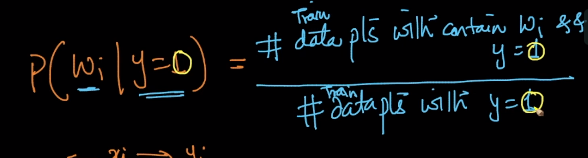 Train
# data pts with contain wi &&
y=0
P(wi | y=0) =
Train
# data pts with y=0
= xi → yi